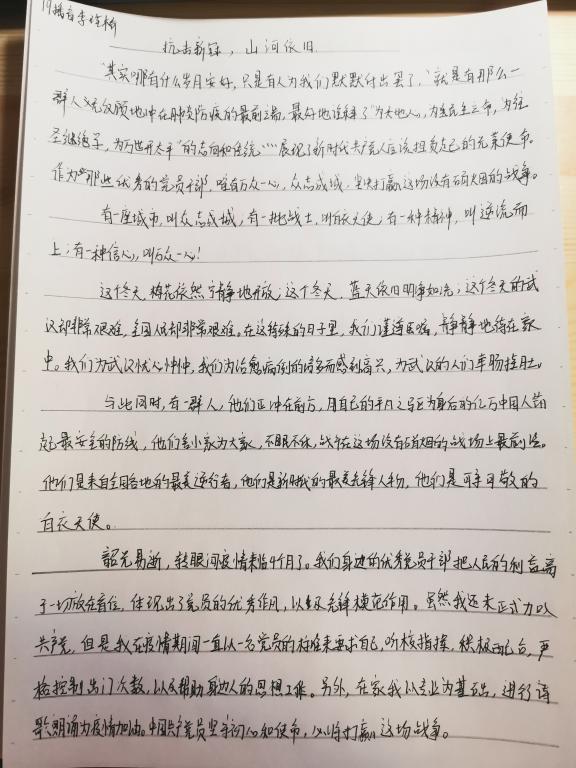 19播音李
抗击新冠，山河依旧
"其实哪有什么岁月安好，只是有人为我们默默付出罢了，"就是有那么一
群人义无反顾地冲在肺炎防疫的最前端，最好地诠释了"为天地人心，为生民立命，为往
圣继绝学，为万世开太平"的志向和传统……展现了新时代共产党人应该担负起的光荣使命。
作为那些优秀的党员干部，唯有万众一心，众志成城，坚决打赢这场没有硝烟的战争。
有一座城市，叫众志成城，有一批战士，叫白衣天使，有一种精神，叫逆流而
上；有一种信心，叫万众一心！
这个冬天，梅花依然宁静地开放；这个冬天，蓝天依旧明净如洗；这个冬天的武
汉却非常艰难，全国人民却非常艰难。在这特殊的日子里，我们谨遵医嘱，静静地待在家
中。我们为武汉忧心忡忡，我们为治愈病例的增多而感到高兴，为武汉的人们牵肠挂肚。
与此同时，有一群人，他们正冲在前方，用自己的平凡之躯为身后的亿万中国人筑
起最安全的防线，他们舍小家为大家，不眠不休，战斗在这场没有硝烟的战场上最前沿。
他们是来自全国各地的最美逆行者，他们是新时代的最美先锋人物，他们是可亲可敬的
白衣天使。
韶光易逝，转眼间疫情来临4个月了。我们身边的优秀党员干部把人民的利益高
于一切放在首位，体现出了党员的优秀作风，以及先锋模范作用。虽然我还未正式加入
共产党，但是我在疫情期间一直以一名党员的标准来要求自己，听校指挥，积极配合，严
格控制出门次数，以及帮助身边人的思想工作。另外，在家我以专业为基础，进行诗
歌朗诵为疫情加油。中国共产党员坚守初心和使命，必将打赢这场战争。